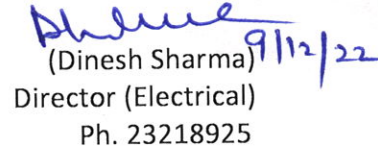 (Dinesh Sharma) 9/12/22
Director (Electrical)
Ph. 23218925